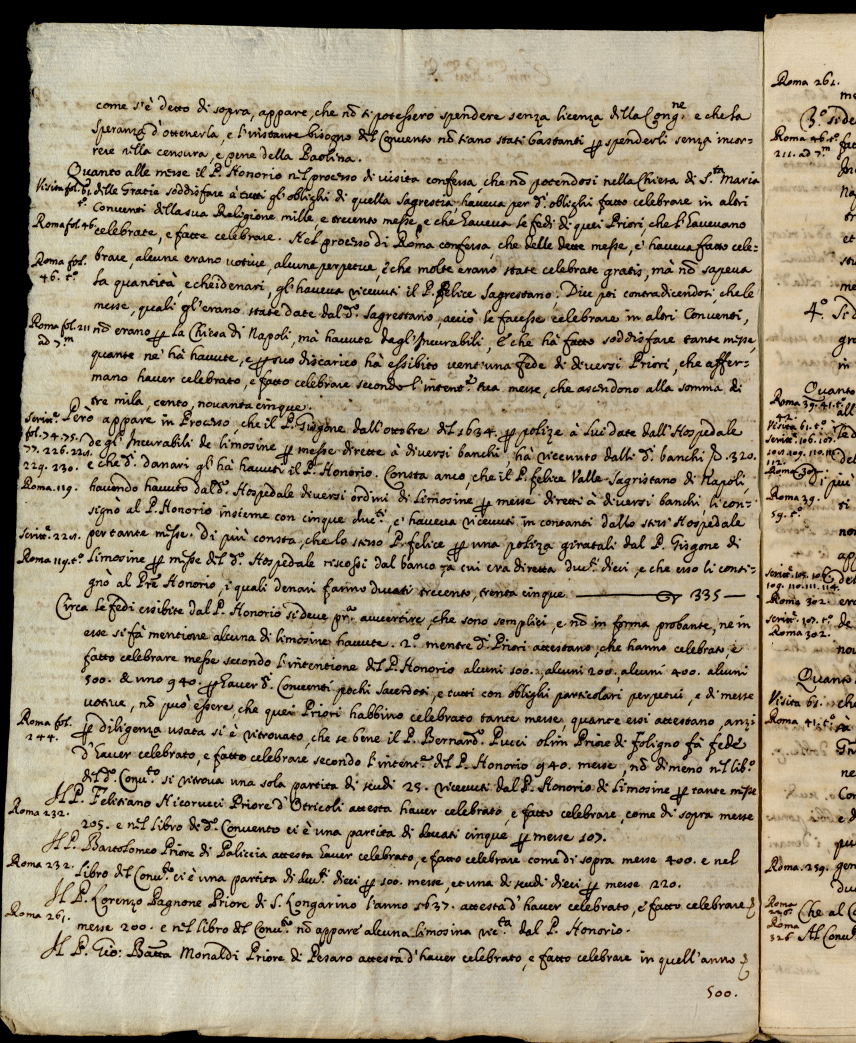 come s'è detto di sopra, appare, che nō si potessero spendere senza licenza della Cong.ne e che la
speranza d'ottenerla, e l'instante bisogno del Convento nō siano stati bastanti per spenderli senza incor-
rere nella censura, e pene della Paolina.
Quanto alle messe il P. Honorio nel processo di visita confessa, che nō potendosi nella Chiesa di S.ta Maria
Visita fol. 61. t.o delle Gratie soddisfare à tutti gl'oblighi di quella Sagrestia, haveva per d.i oblighi fatto celebrare in altri
Conventi della sua Religione mille e trecento messe, e che haveva le fedi di quei Priori, che l'havevano
Roma fol. 46. celebrate, e fatte celebrare. Nel processo di Roma confessa, che delle dette messe, che haveva fatto cele-
brare, alcune erano votive, alcune perpetue, e che molte erano state celebrate gratis, mà nō sapeva
Roma fol. 46. t.o la quantità, e che i denari, gl'haveva ricevuti il P. Felice Sagrestano. Dice poi contradicendosi, che le
messe, quali gl'erano state date dal d.o Sagrestano, acciò le facesse celebrare in altri Conventi,
Roma fol. 211 ad 7.m nō erano per la Chiesa di Napoli, mà havute dagl'Incurabili, e che hà fatto soddisfare tante messe,
quante ne hà havute, e per suo discarico hà essibito vent'una fede di diversi Priori, che affer-
mano haver celebrato, e fatto celebrare secondo l'intent.e sua messe, che ascendono alla somma di
tre mila, cento, novanta cinque.
Però appare in Processo, che il P. Girgone dall'ottobre del 1634. per polize à lui date dall'Hospedale
fol. 74. 75. 77. 226. 228. de gl'Incurabili de limosine per messe dirette à diversi banchi hà ricevuto dalli d.i banchi D. 320.
229. 230. e che d.i danari gl'hà havuti il P. Honorio. Consta anco, che il P. Felice Valle Sagristano di Napoli,
Roma. 119. havendo havuto dal d.o Hospedale diversi ordini di limosine per messe diretti à diversi banchi li con-
signò al P. Honorio insieme con cinque duc.ti, c'haveva ricevuti in contanti dallo stesso Hospedale
per tante messe. Di più consta, che lo stesso P. Felice per una poliza giratali dal P. Girgone di
Roma 119. t.o limosine per messe del d.o Hospedale riscossi dal banco à cui era diretta duc.ti dieci, e che esso li consi-
gnò al P.re Honorio, i quali denari fanno ducati trecento, trenta cinque 335 —
Circa le fedi essibite dal P. Honorio si deve pr.a avvertire, che sono semplici, e nō in forma probante, ne in
esse si fà mentione alcuna di limosine havute. 2.o mentre d.i Priori attestano, che hanno celebrato, e
fatto celebrare messe secondo l'intentione del P. Honorio alcuni 100., alcuni 200. alcuni 400. alcuni
500. & uno 940. per haver d.i Conventi pochi Sacerdoti, e tutti con oblighi particolari perpetui, e di messe
votive, nō può essere, che quei Priori habbino celebrato tante messe, quante essi attestano, anzi
Roma fol. 244. per diligenza usata si è ritrovato, che se bene il P. Bernard.o Pucci olim Priore di Foligno fà fede
d'haver celebrato, e fatto celebrare secondo l'intent.e del P. Honorio 940. messe, nō dimeno nel lib.o
del d.o Conv.to si ritrova una sola partita di scudi 25. ricevuti dal P. Honorio di limosine per tante messe
Il P. Felitiano Priore d'Otricoli attesta haver celebrato, e fatto celebrare, come di sopra messe
Roma 232. 205. e nel libro di d.o Convento ci è una partita di ducati cinque per messe 107.
Il P. Bartolomeo Priore di attesta haver celebrato, e fatto celebrare come di sopra messe 400. e nel
Roma 232. libro del Conv.to ci è una partita di duc.ti dieci per 100. messe, et una di scudi dieci per messe 220.
Il P. Lorenzo Pagnone Priore di S. Longarino l'anno 1637. attesta d'haver celebrato, e fatto celebrare
Roma 261. messe 200. e nel libro del Conv.to nō appare alcuna limosina ric.ta dal P. Honorio.
Il P. Gio: Batta Monaldi Priore di Pesaro attesta d'haver celebrato, e fatto celebrare in quell'anno
500.
Roma 261.
3.o si de
Roma 46. t.o
211. ad 7.m
4.o Si d
Quanto
Roma 39. 41. t.o
Visita 61. t.o
Roma 39.
59. t.o
Roma 302.
Roma 302.
Quanto
Visita 61.
Roma 41. t.o
Roma. 239.
Roma 226. Che al C
Roma 326 Al Conv.